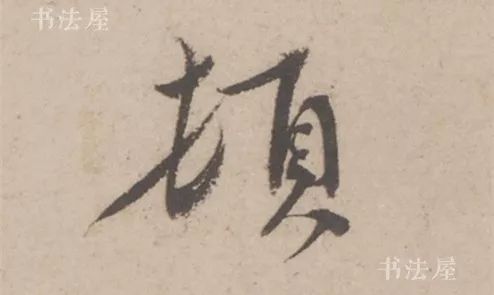 书法屋
頓
书法屋